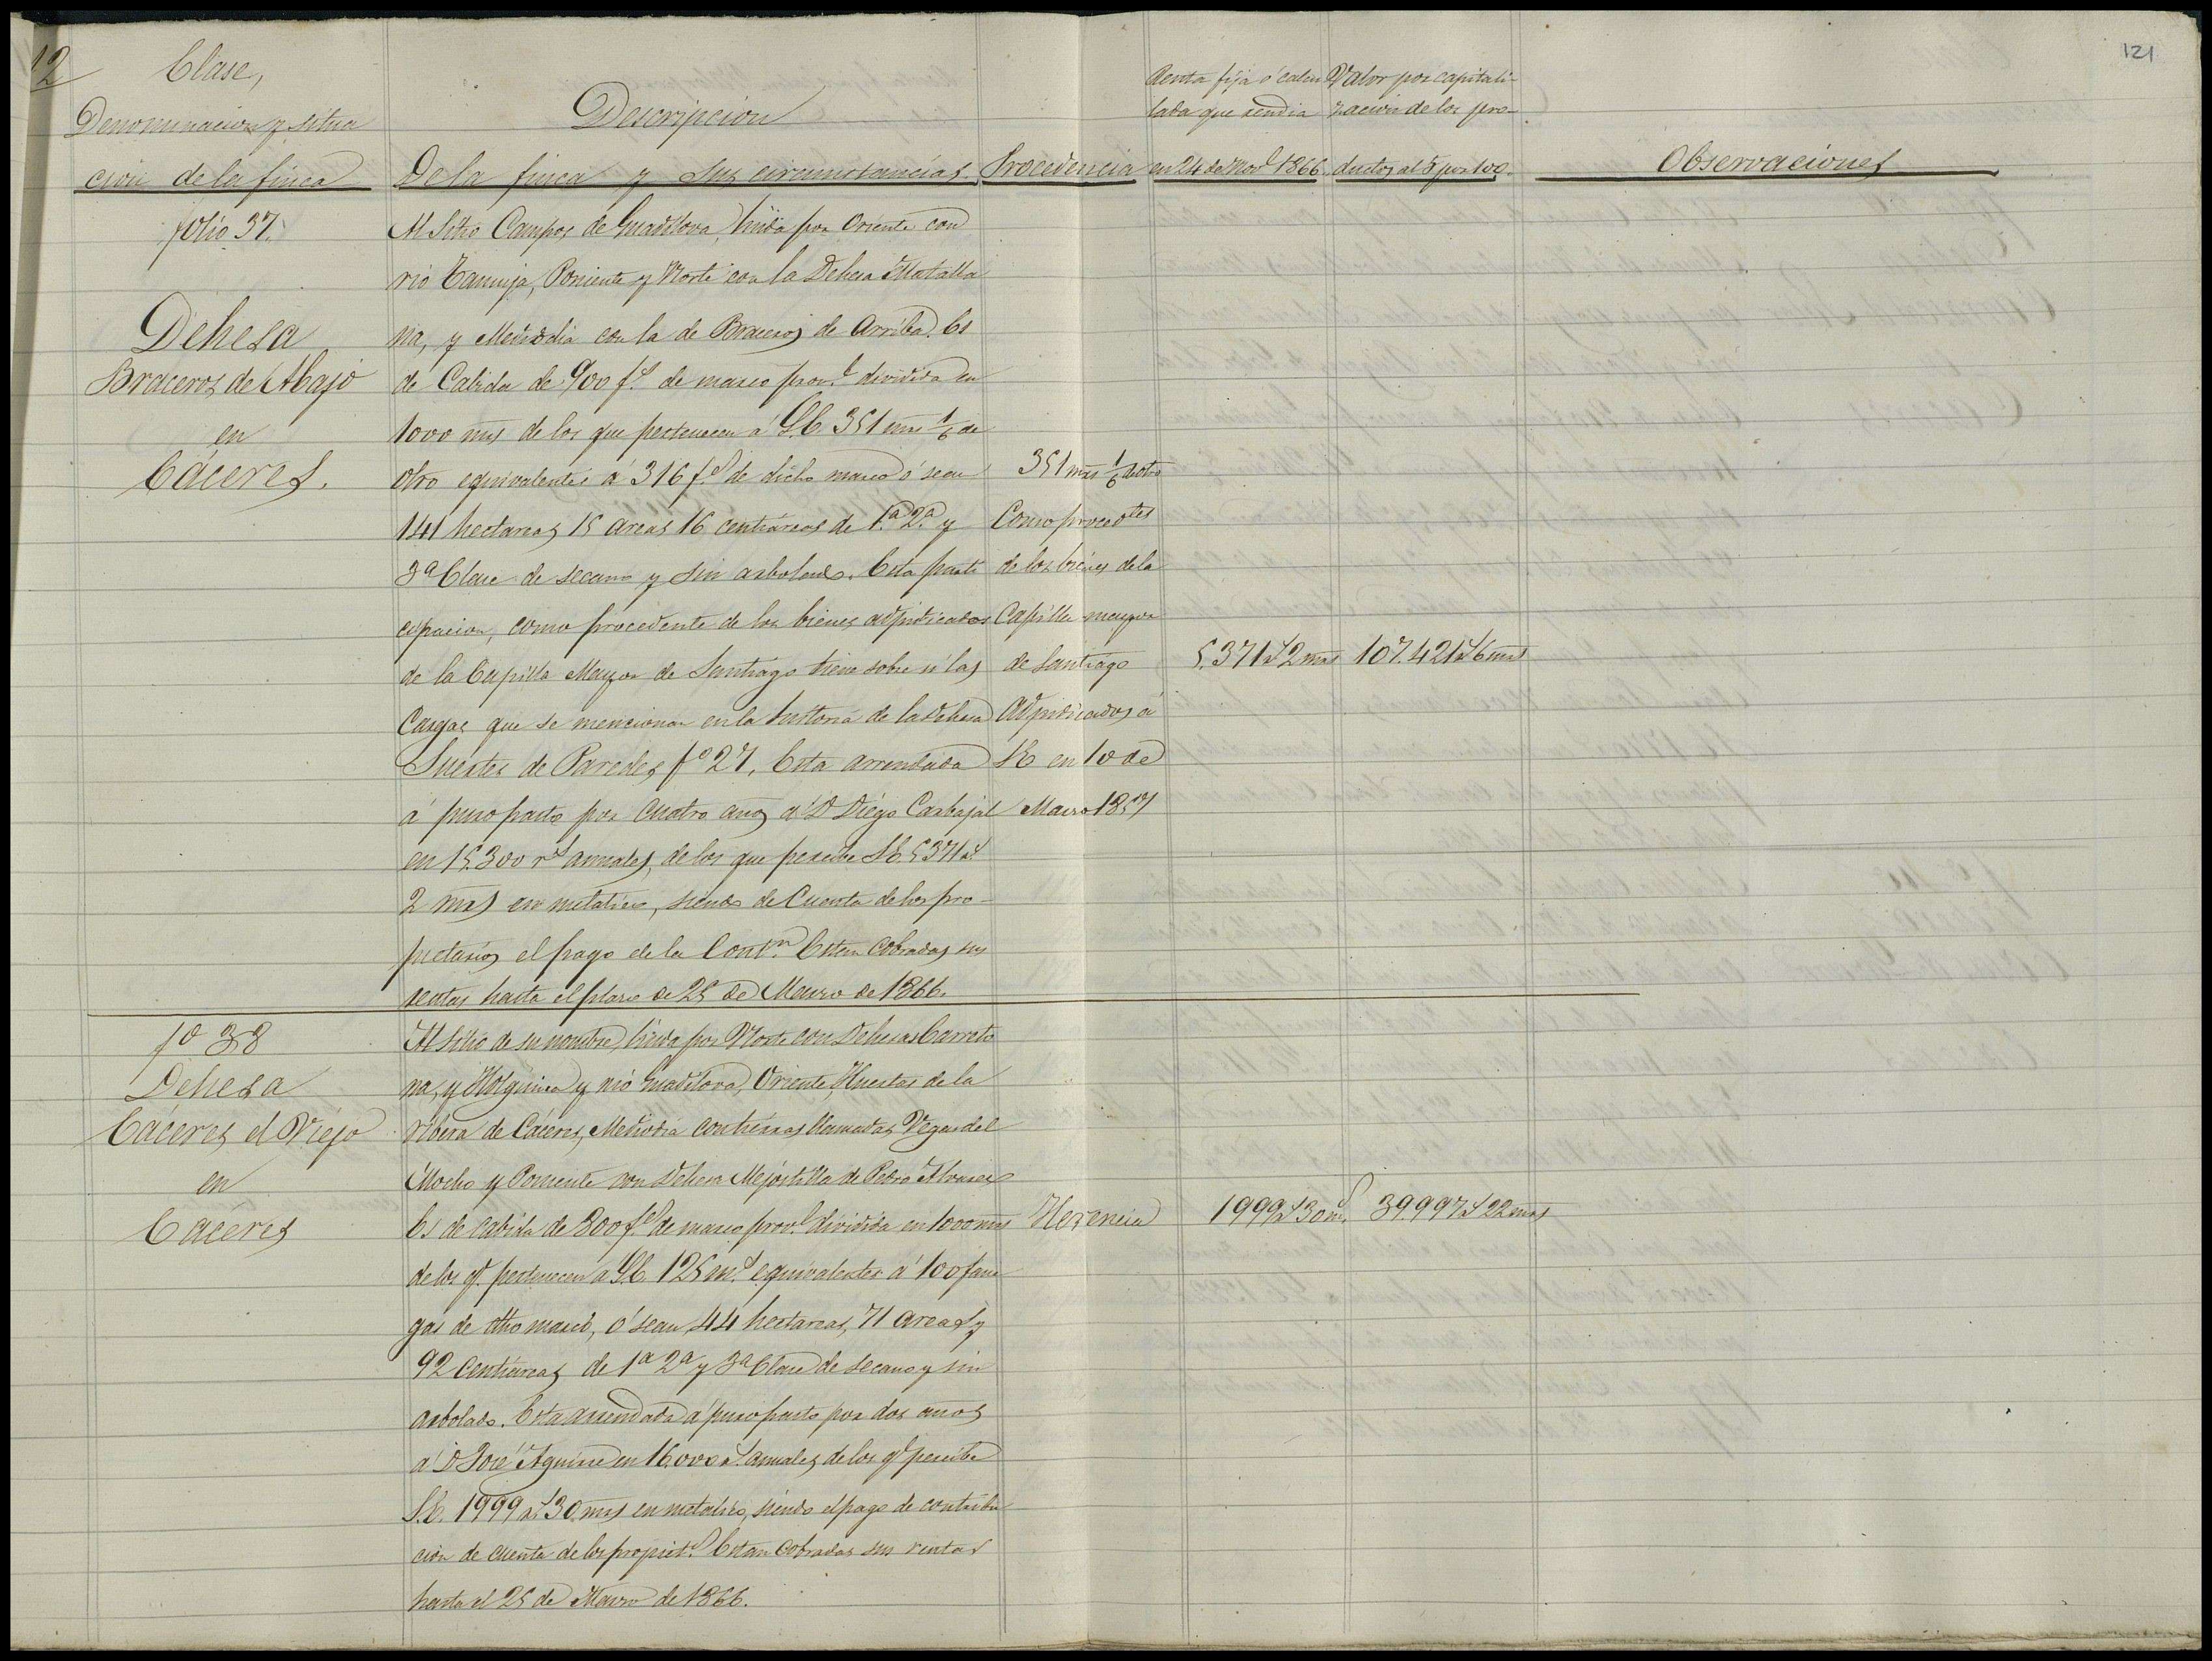 12
121
Clase,
Denominacion y situa
cion de la finca
Descripcion
De la finca y sus circunstancias.
Procedencia
Renta fija ó calcu
lada que rendia
en 24 de Nov.e 1866.
Valor por capitali-
zacion de los pro-
ductos al 5 por 100.
Observaciones
folio 37.
Dehesa
Braceros de Abajo
en
Cáceres.
Al Sitio Campos de Guadilova, linda por Oriente con
rio Tamuja, Poniente y Norte con la Dehesa Matalla
na, y Mediodia con la de Braceros de Arriba. Es
de Cabida de 900 f.s de marco prov.l dividida en
1000 mrs de los que pertenecen á S.E. 351 mrs 1/6 de
otro equivalentes á 316 f.s de dicho marco ó sean
141 hectareas 15 areas 16 centiáreas de 1.a 2.a y
3.a Clase de secano y sin arbolado. Esta parti
cipacion, como procedente de los bienes adjudicados
de la Capilla Mayor de Santiago tiene sobre sí las
Cargas que se mencionan en la historia de la Dehesa
Suertes de Paredes f.o 27. Esta arrendada
á puro pasto por cuatro años á D Diego Carbajal
en 15.300 r.s anuales, de los que percibe S.E. 5371 r.s
2 mrs en metalico, siendo de Cuenta de los pro-
pietarios el pago de la Cont.on Estan cobradas sus
rentas hasta el plazo de 25 de Marzo de 1866.
351 mrs 1/6 de otro
Como proced.tes
de los bienes de la
Capilla mayor
de Santiago
Adjudicados á
S.E en 10 de
Marzo 1857
5.371 r.s 2 mrs
107.421 r.s 6 mrs
f.o 38
Dehesa
Cáceres el Viejo
en
Caceres
Al sitio de su nombre, linda por Norte con Dehesas Carreto
na, y Holguina y rio Guadilova, Oriente, Huertas de la
ribera de Cáceres, Mediodia con tierras llamadas Vegas del
Mocho y Poniente con Dehesa Mejostilla de Pedro Alvarez
Es de cabida de 800 f.s de marco prov.l dividida en 1000 mrs
de los q.e pertenecen á S.E. 125 m.s equivalentes á 100 fane
gas de dho marco, ó sean 44 hectareas, 71 areas y
92 Centiareas de 1.a 2.a y 3.a Clase de secano y sin
arbolado. Esta arrendada á puro pasto por dos años
á D José Aguirre en 16.000 r.s anuales, de los q.e percibe
S.E. 1999 r.s 30 mrs en metalico, siendo el pago de contribu
cion de cuenta de los propiet.s Estan Cobradas sus rentas
hasta el 25 de Marzo de 1866.
Herencia
1999 r.s 30 m.s
39.997 r.s 22 mrs